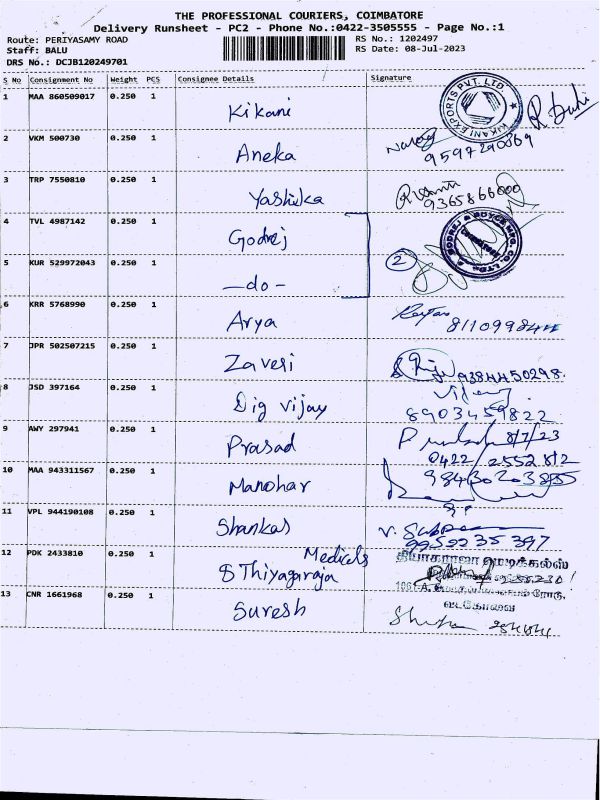 THE PROFESSIONAL COURIERS, COIMBATORE
Delivery Runsheet - PC2 - Phone No.:0422-3505555 - Page No.:1
Route: PERIYASAMY ROAD RS No.: 1202497
Staff: BALU RS Date: 08-Jul-2023
DRS No.: DCJB120249701
S No Consignment No Weight PCS Consignee Details Signature
1 MAA 860509017 0.250 1 Kikani KIKANI EXPORTS PVT. LTD
2 VKM 500730 0.250 1 Aneka
9597290869
3 TRP 7550810 0.250 1 Yashika
9365866000
4 TVL 4987142 0.250 1 Godrej GODREJ & BOYCE MFG. CO. LTD.
5 KUR 529972043 0.250 1 -do- 2
6 KRR 5768990 0.250 1 Arya
7 JPR 502507215 0.250 1 Zaveri 9384450298
8 JSD 397164 0.250 1 Dig vijay
8903459822
9 AWY 297941 0.250 1 Prasad 8/7/23
0422/2552812
10 MAA 943311567 0.250 1 Manohar
11 VPL 944190108 0.250 1 Shankar
9952235397
12 PDK 2433810 0.250 1 Medicals தியாகராஜா மெடிக்கல்ஸ்
Thiyagaraja
13 CNR 1661968 0.250 1 Suresh வடகோவை